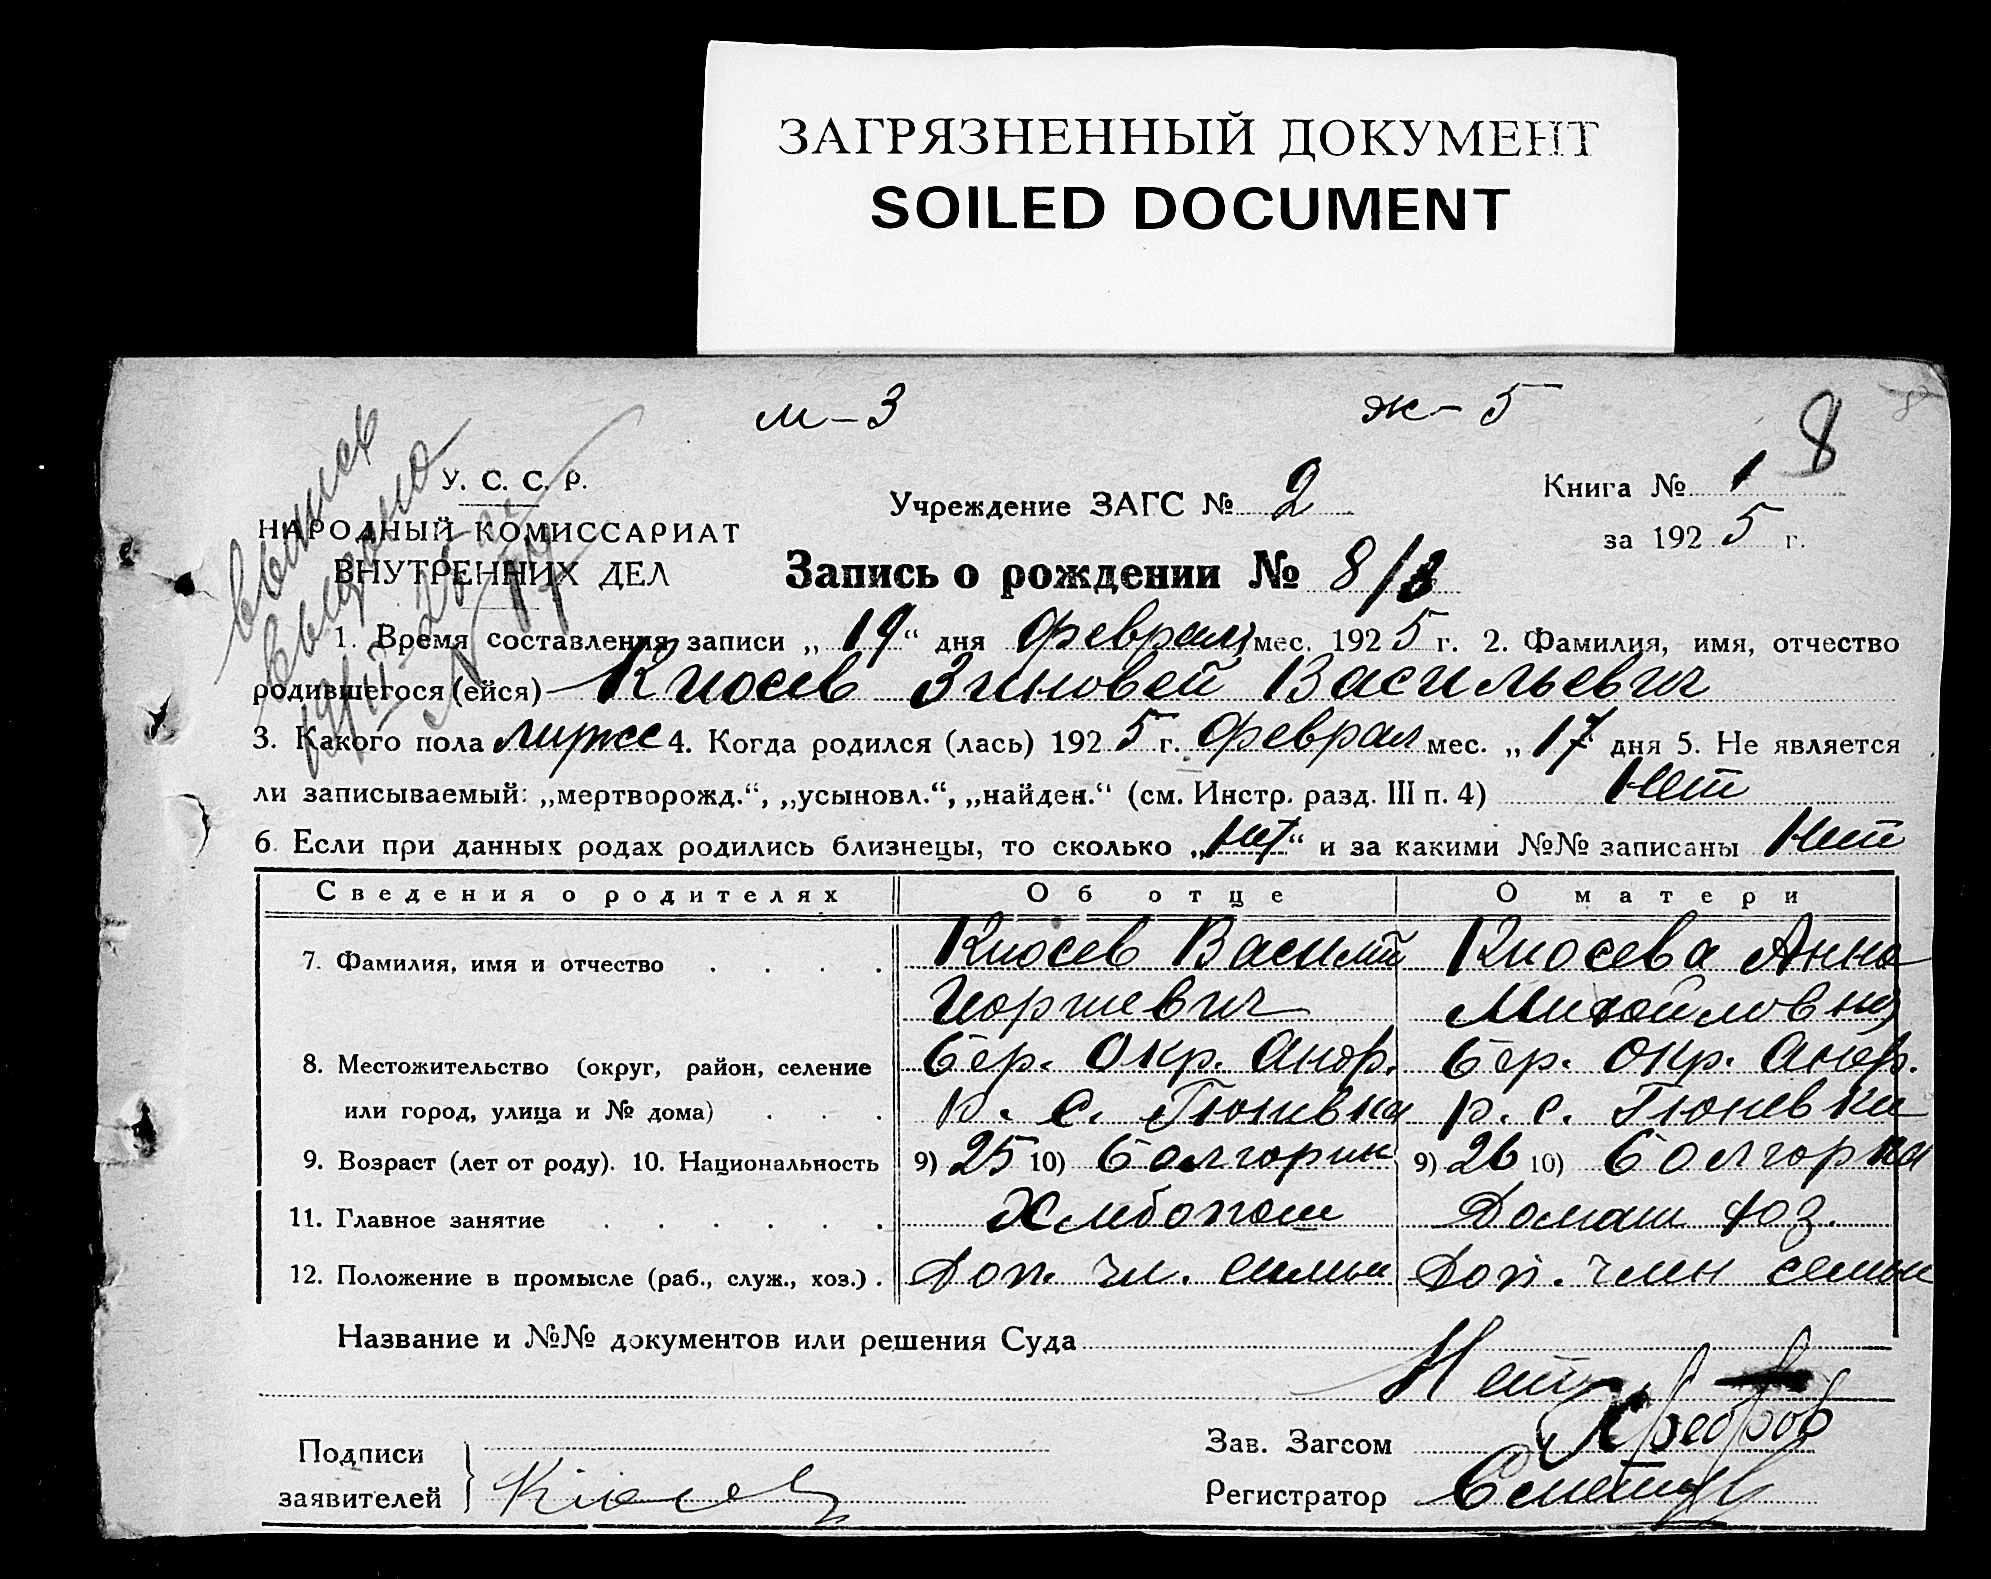 ЗАГРЯЗНЕННЫЙ ДОКУМЕНТ
SOILED DOCUMENT
м - 3 ж - 5 8
выписка
выдана
У. С. С. Р.
НАРОДНЫЙ КОМИССАРИАТ
ВНУТРЕННИХ ДЕЛ
Учреждение ЗАГС № 2
Книга № 1
за 1925 г.
Запись о рождении № 8/
1. Время составления записи „19“ дня Феврал мес. 1925 г. 2. Фамилия, имя, отчество
родившегося (ейся) Киосев Зиновей Васильевич
3. Какого пола мужс 4. Когда родился (лась) 1925 г. Феврал мес. „17“ дня 5. Не является
ли записываемый: „мертворожд.“, „усыновл.“, „найден.“ (см. Инстр. разд. III п. 4) Нет
6. Если при данных родах родились близнецы, то сколько „нет“ и за какими №№ записаны Нет
Сведения о родителях Об отце О матери
7. Фамилия, имя и отчество . . . . Киосев Василий Киосева Анна
Георгиевич Михайловна
8. Местожительство (округ, район, селение Бер. Окр. Андр. Бер. Окр. Андр.
или город, улица и № дома) . . . р. с. Гюневка р. с. Гюневка
9. Возраст (лет от роду). 10. Национальность 9) 25 10) болгорин 9) 26 10) болгорка
11. Главное занятие . . . . . . Хлебопаш Домаш хоз.
12. Положение в промысле (раб., служ., хоз.) . Доп. чл. семьи Доп. член семьи
Название и №№ документов или решения Суда
Нет
Подписи
заявителей } Кіосев
Зав. Загсом
Регистратор